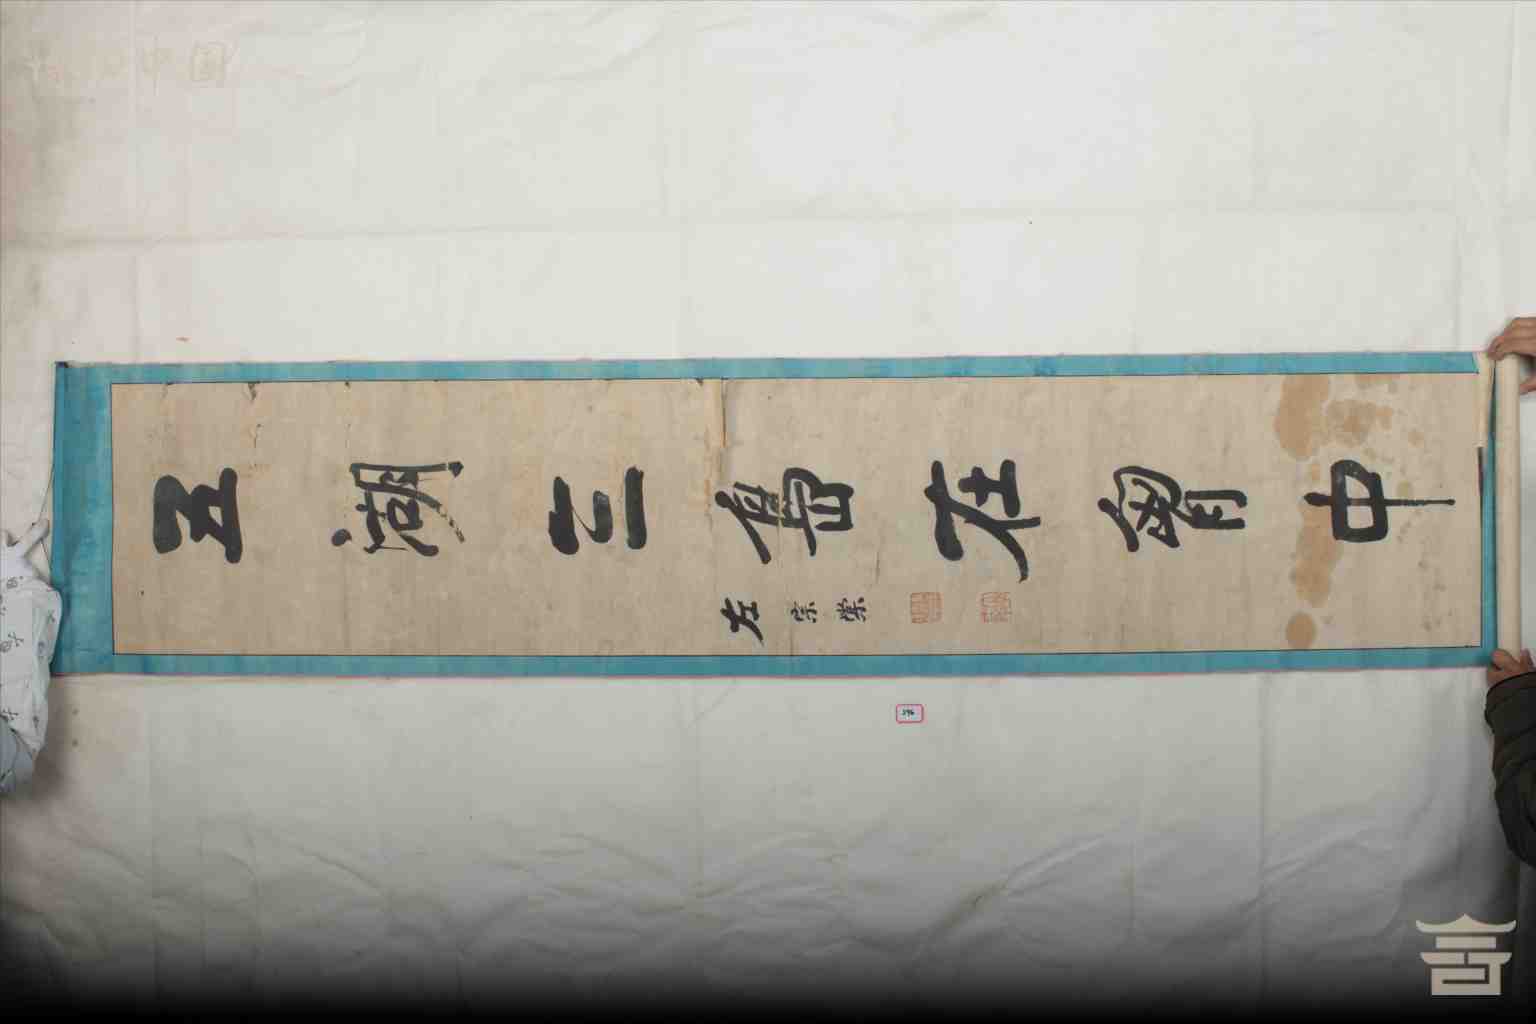 五湖三島在胷中
左宗棠